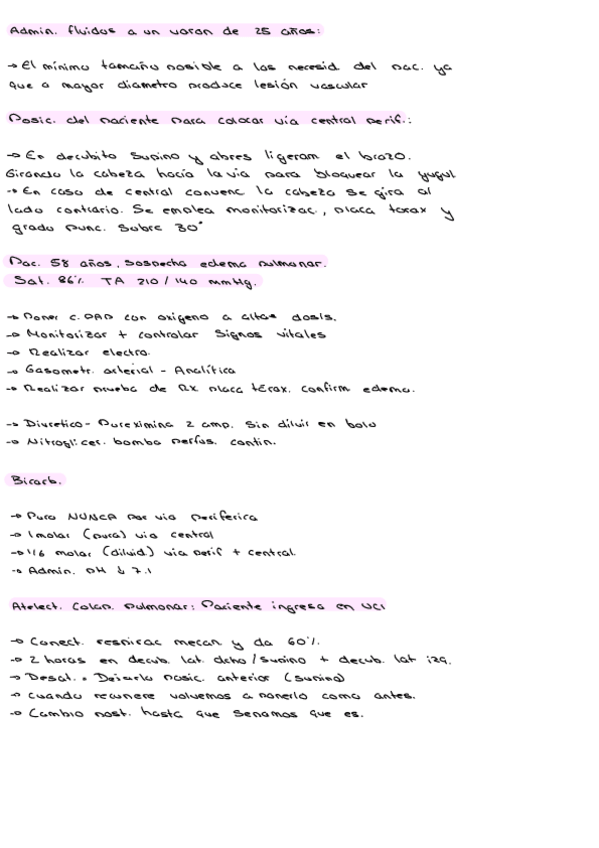 Admin. fluidos a un varon de 25 años:
→ El mínimo tamaño posible a las necesid. del pac. ya
que a mayor diametro produce lesión vascular
Posic. del paciente para colocar vía central perif.:
→ En decubito supino y abres ligeram el brazo.
Girando la cabeza hacía la vía para bloquear la yugul
→ En caso de central convenc la cabeza se gira al
lado contrario. Se emplea monitorizac., placa torax y
grado punc. sobre 30°
Pac. 58 años, sospecha edema pulmonar.
Sat. 86% TA 210/140 mmHg.
→ Poner C.PAP con oxigeno a altas dosis.
→ Monitorizar + controlar signos vitales
→ Realizar electro.
→ Gasometr. arterial - Analítica
→ Realizar prueba de Rx placa tórax. confirm edema.
→ Diuretico - Furoximina 2 amp. sin diluir en bolo
→ Nitroglicer. bomba perfus. contin.
Bicarb.
→ Puro NUNCA por via periferica
→ 1molar (pura) via central
→ 1/6 molar (diluid.) via perif + central.
→ Admin. pH ↓ 7.1
Atelect. Colap. pulmonar: Paciente ingresa en UCI
→ Conect. respirac mecan y da 60%.
→ 2 horas en decub. lat. dcho/supino + decub. lat izq.
→ Desat. Dejarlo posic. anterior (supino)
→ Cuando recupere volvemos a ponerlo como antes.
→ Cambio post. hasta que sepamos que es.